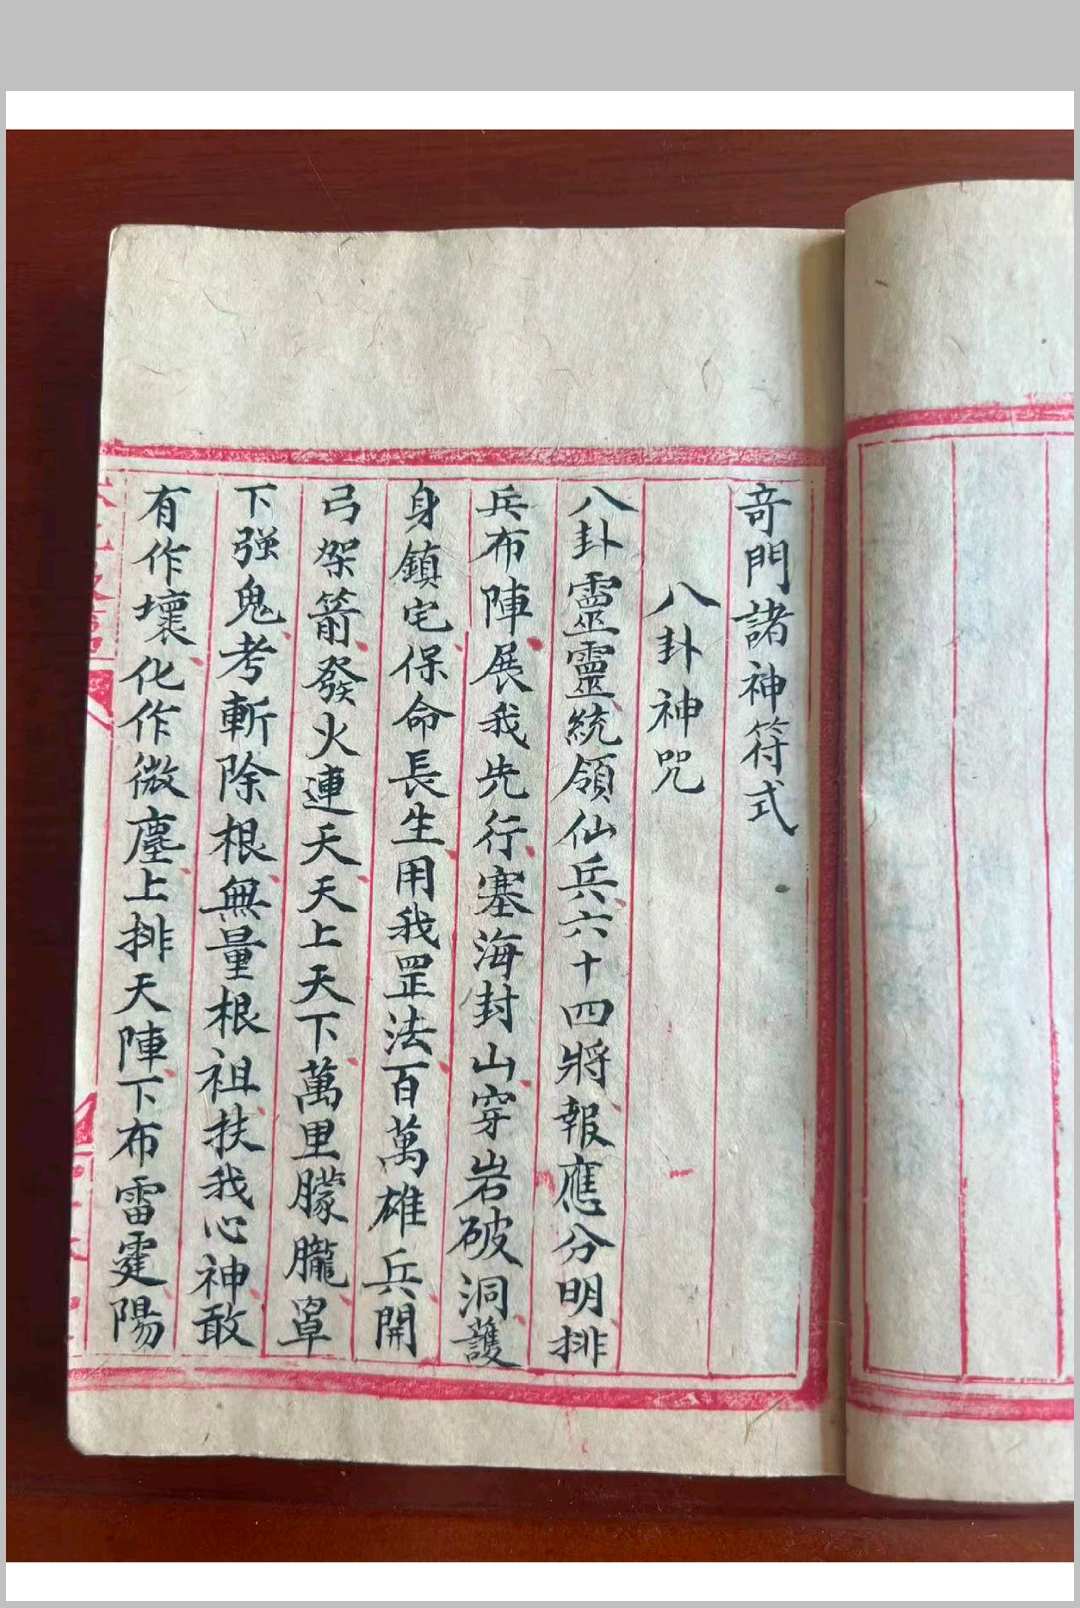 奇門諸神符式
八卦神咒
八卦靈靈統領仙兵六十四將報應分明排
兵布陣展我先行塞海封山穿岩破洞護
身鎮宅保命長生用我罡法百萬雄兵開
弓架箭發火連天天上天下萬里朦朧罩
下強鬼考斬除根無量根祖扶我心神敢
有作壞化作微塵上排天陣下布雷霆陽